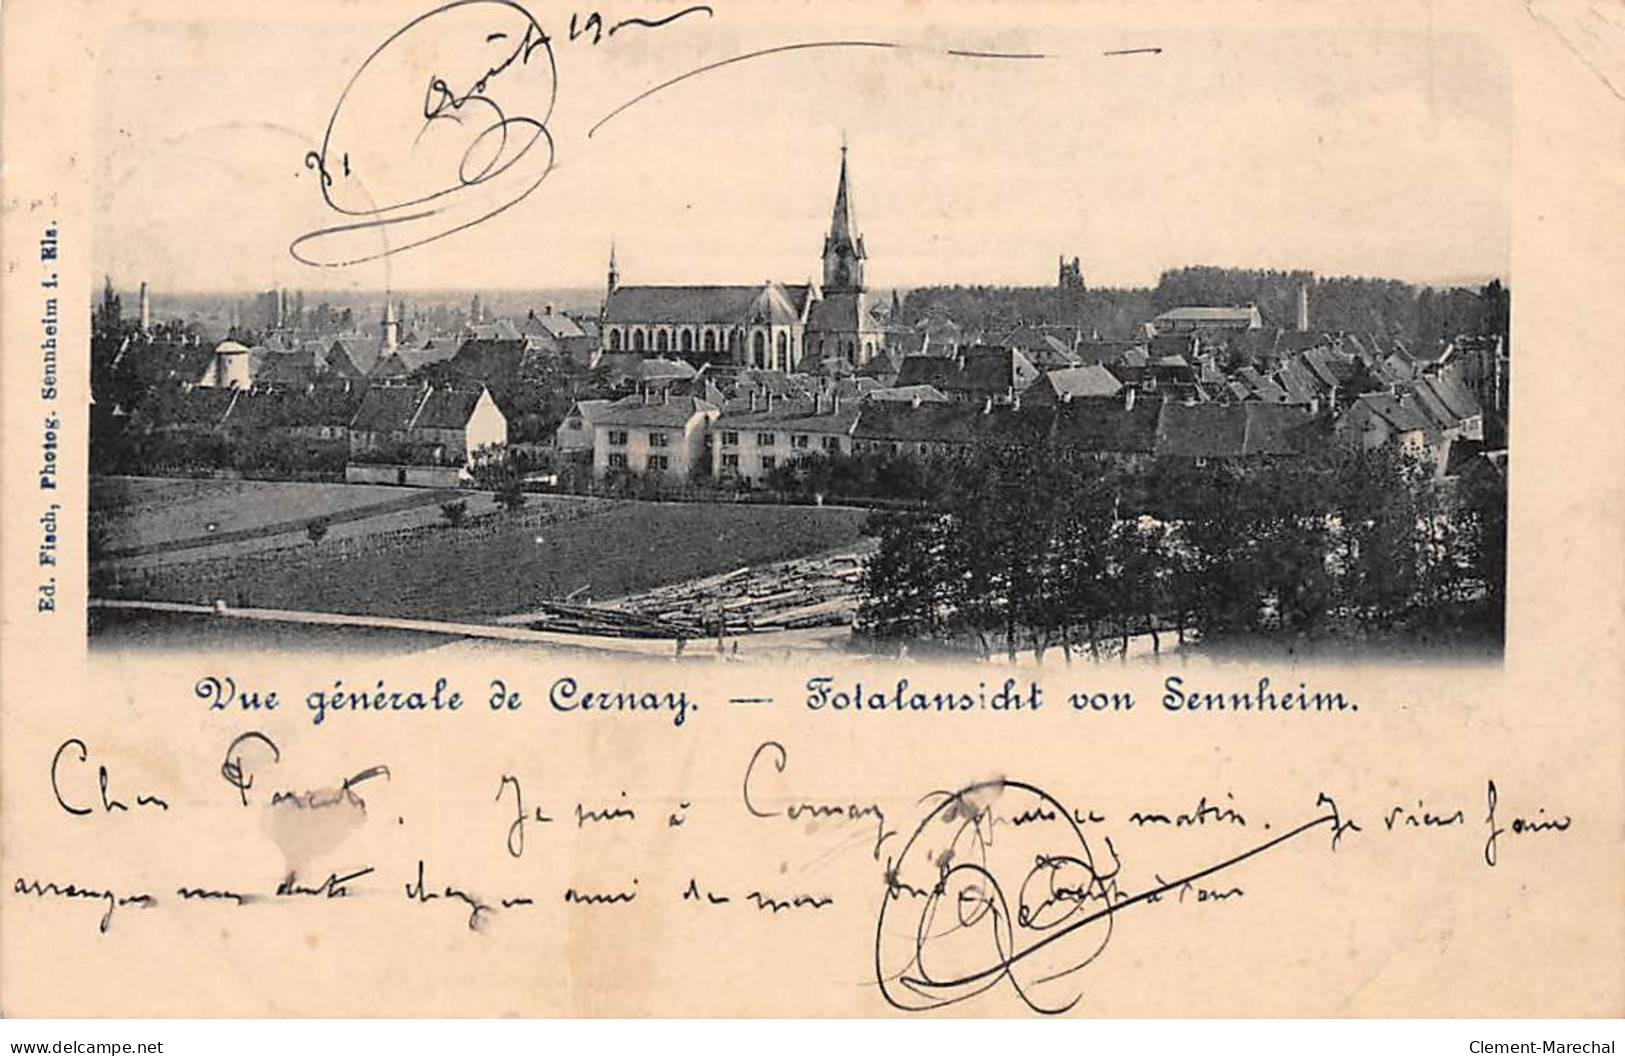 31 Août 190
Ed. Fisch, Photog. Sennheim i. Els.
Vue générale de Cernay. — Totalansicht von Sennheim.
Chers Parents. Je suis à Cernay depuis ce matin. Je viens faire
arranger mes dents chez un ami de mon
www.delcampe.net
Clement-Marechal